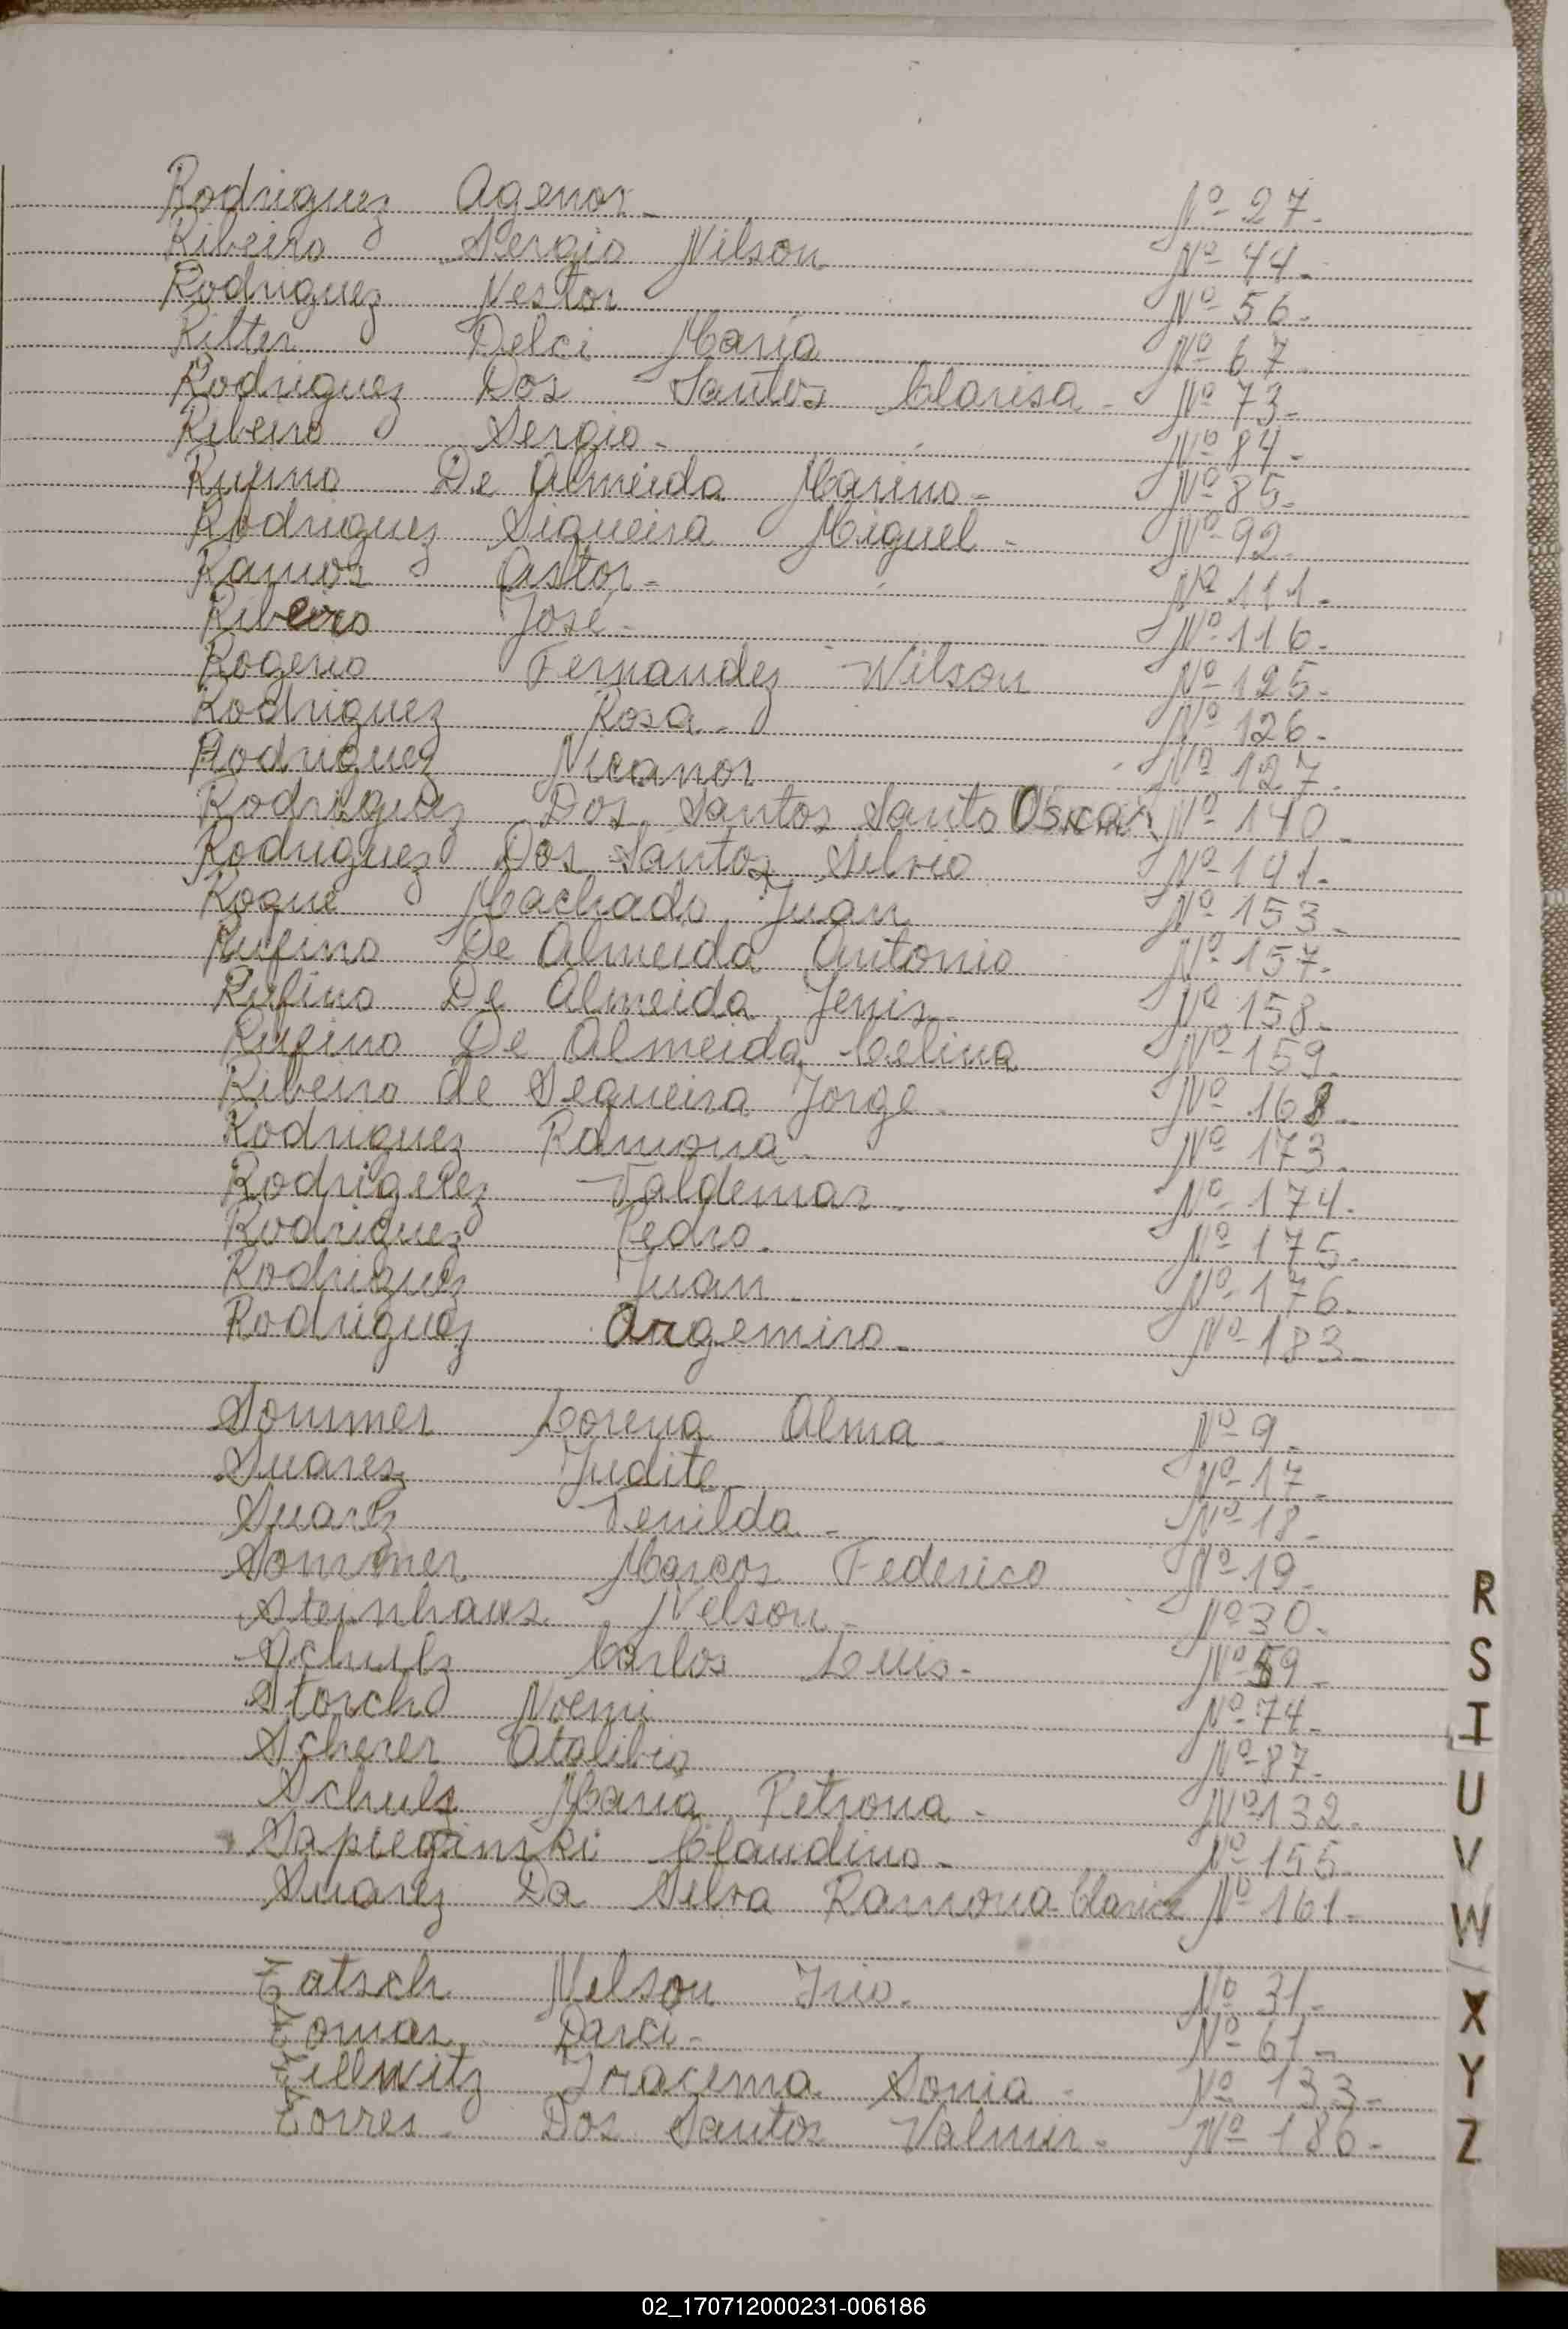 Rodriguez Agenor - Nº 27 -
Ribeiro Sergio Nilson Nº 44 -
Rodriguez Nestor Nº 56 -
Ritter Delci María Nº 67
Rodriguez Dos Santos Clarisa - Nº 73 -
Ribeiro Sergio - Nº 84 -
Rufino De Almeida Marino - Nº 85 -
Rodriguez Siqueira Miguel - Nº 92
Ramos Astor - Nº 111 -
Ribeiro José - Nº 116 -
Rogerio Fernandez Wilson Nº 125 -
Rodriguez Rosa - Nº 126 -
Rodriguez Nicanor Nº 127 -
Rodriguez Dos Santos Santo Oscar Nº 140 -
Rodriguez Dos Santos Silvio Nº 141 -
Roque Machado Juan Nº 153 -
Rufino De Almeida Antonio Nº 157 -
Rufino De Almeida Jenis - Nº 158 -
Rufino De Almeida Celina Nº 159 -
Ribeiro de Sequeira Jorge Nº 168 -
Rodriguez Ramona - Nº 173 -
Rodriguez Valdemar - Nº 174 -
Rodriguez Pedro. Nº 175 -
Rodriguez Juan - Nº 176 -
Rodriguez Argemiro - Nº 183 -
Sommer Lorena Alma - Nº 9 -
Suarez Judite Nº 17 -
Suarez Tenilda - Nº 18 -
Sommer Marcos Federico Nº 19 -
Steinhaus Nelson - Nº 30 -
Schulz Carlos Luis - Nº 59 -
Storch Noemi Nº 74 -
Scherer Otalibio Nº 87 -
Schulz María Petrona - Nº 132 -
Claudino - Nº 155
Suarez Da Silva Ramona Clarice Nº 161 -
Tatsch Nelson Nº 31 -
Tomar Darci - Nº 61 -
Tillwitz Iracema Sonia - Nº 133 -
Torres Dos Santos Valmir - Nº 186 -
R
S
I
U
V
W
X
Y
Z
02_170712000231-006186